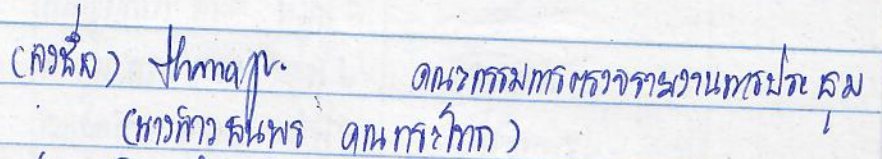 (ลงชื่อ) คณะกรรมการตรวจรายงานการประชุม
(นางสาวธนพร คณกระโทก)